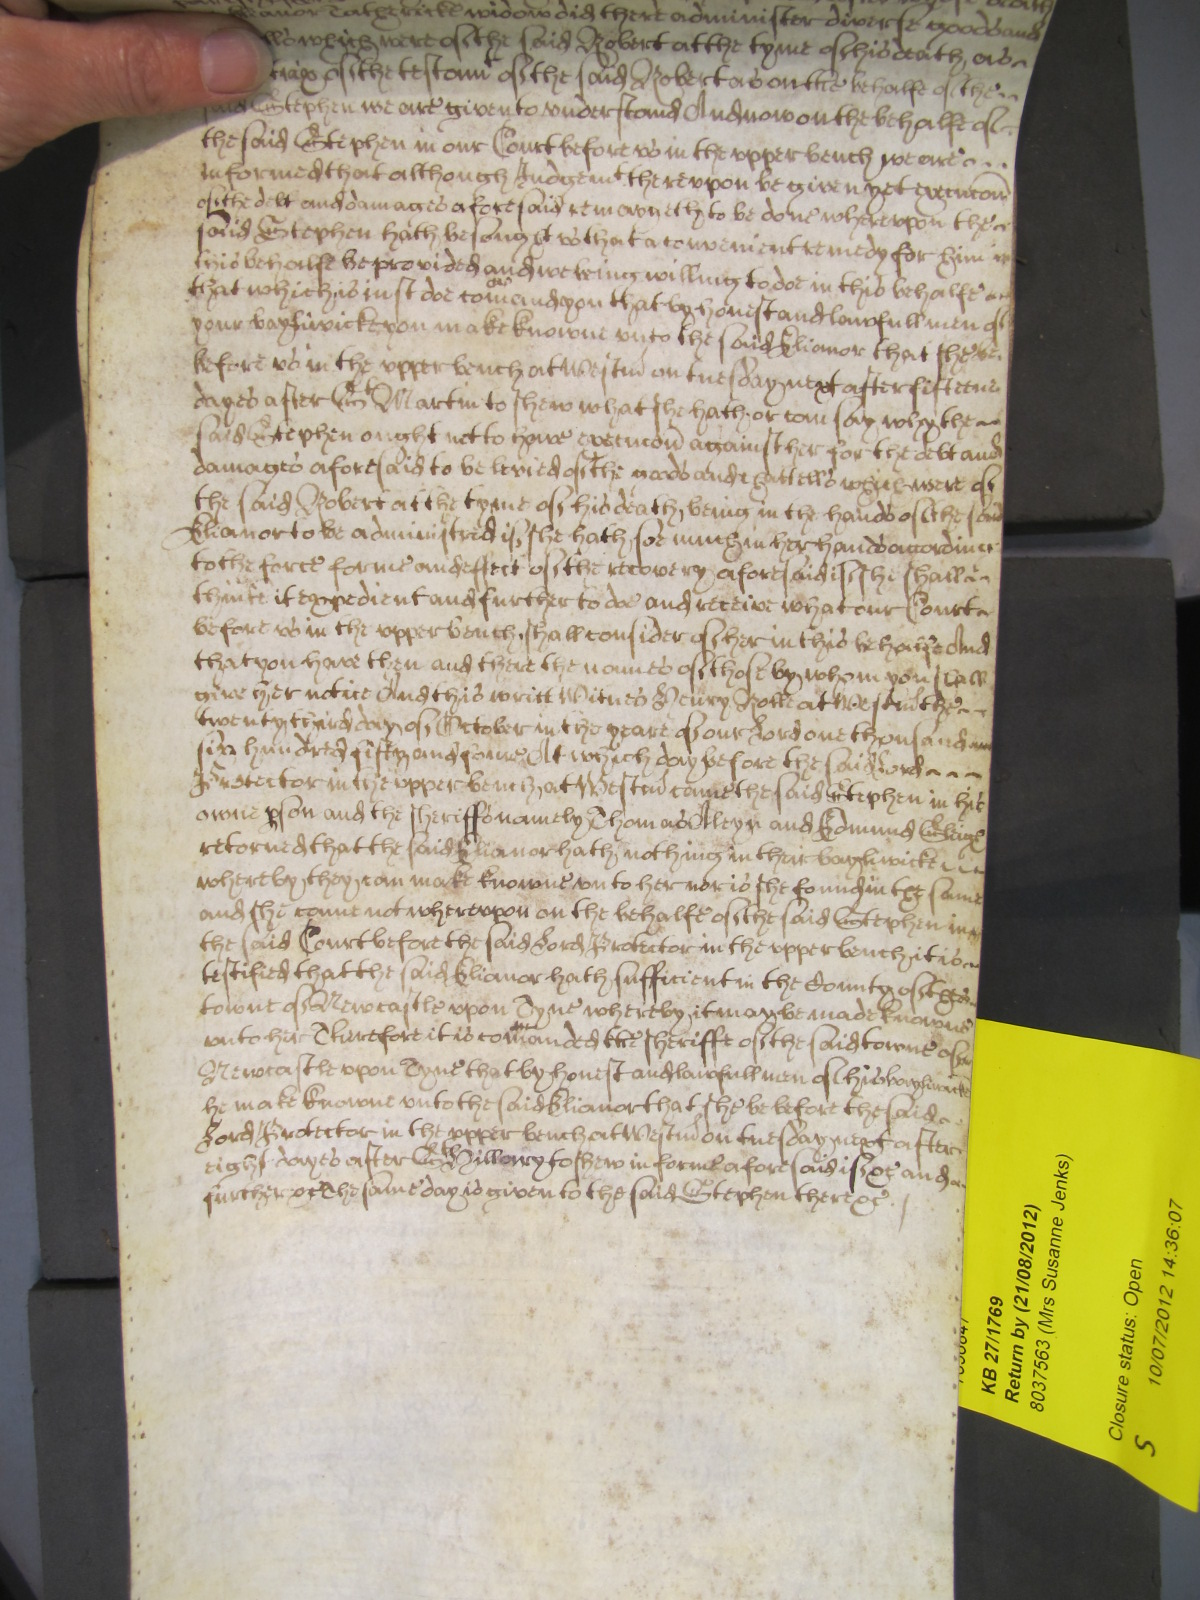 widow did there administer diverse goods and
which were of the said Robert at the tyme of his death, as
of the testamt of the said Robert as on the behalfe of the
said Stephen we are given to understand And now on the behalfe of
the said Stephen in our Court before us in the upper bench we are
informed that although Judgemt thereupon be given yet execucon
of the debt and damages aforesaid remayneth to be done whereupon the
said Stephen hath besought us that a convenient remedy for him in
this behalfe be provided and we being willing to doe in this behalfe
that which is just doe comand you that by honest and lawfull men of
your baylywicke you make knowne unto the said Elianor that she be
before us in the upper bench at Westm on tuesday next after fifteene
dayes after St Martin to shew what she hath or can say why the
said Stephen ought not to have execucon against her for the debt and
damages aforesaid to be levied of the goods and chattells which were of
the said Robert at the tyme of his death, being in the hands of the said
Elianor to be administred if she hath soe much in her hands according
to the force forme and effect of the recovery aforesaid if she shall
thinke it expedient and further to doe and receive what our Court
before us in the upper bench, shall consider of her in this behalfe And
that you have then and there the names of those by whom you shall
give her notice And this writt Witnes Henry Rolle at Westm the
twenty third day of October in the yeare of our Lord one thousand
six hundred fifty and foure At which day before the said Lord
Protector in the upper bench, at Westm came the said Stephen in his
owne pson and the sheriffs namely Thomas Aleyn and Edmund
retorned that the said Elianor hath nothing in their baylywicke
whereby they can make knowne unto her nor is she found in the same
and she came not whereupon on the behalfe of the said Stephen in
the said Court before the said Lord Protector in the upper bench it is
testified that the said Elianor hath sufficient in the County of the
towne of Newcastle upon Tyne whereby it may be made knowne
unto her Therefore it is comanded the sheriffe of the said towne of
Newcastle upon Tyne that by honest and lawfull men of his baylywicke
he make knowne unto the said Elianor that she be before the said
Lord Protector in the upper bench at Westm on tuesday next after
eight dayes after St Hillary to shew in forme aforesaid if &c and
further &c The same day is given to the said Stephen there &c
KB 27/1769
Return by (21/08/2012)
8037563 (Mrs Susanne Jenks)
Closure status: Open
10/07/2012 14:36:07
S